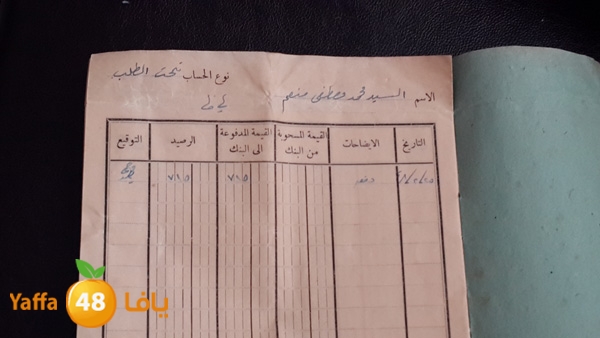 نوع الحساب تحت الطلب
الاسم السيد محمد مصطفى
التاريخ الايضاحات القيمة المسحوبة من البنك القيمة المدفوعة الى البنك الرصيد التوقيع
٧١٥ ٧١٥
Yaffa 48 يافا